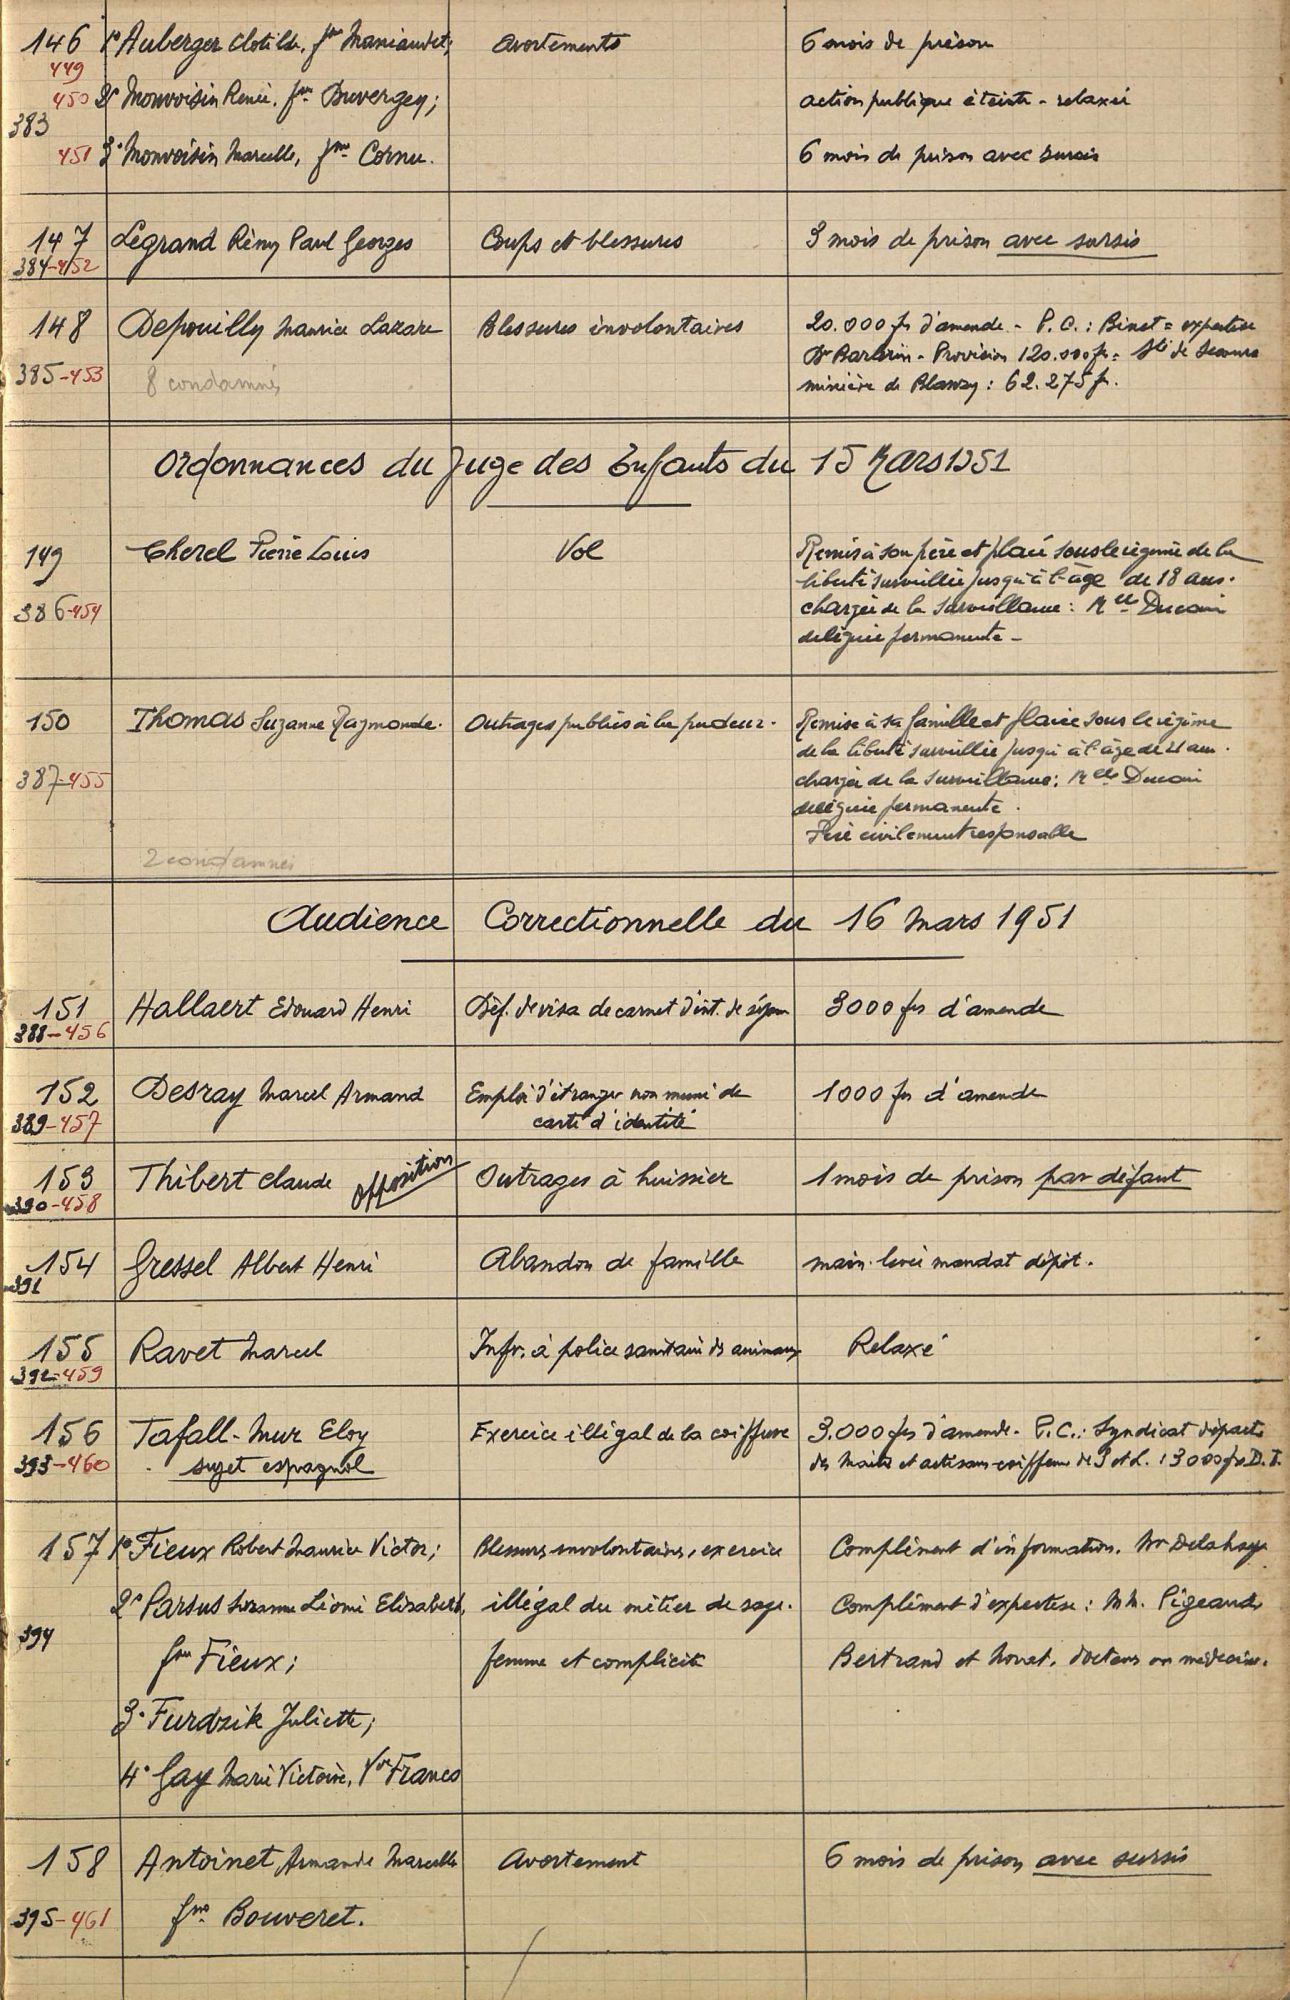 146 1° Auberger Clotilde, fme Maniaudet; Avortements 6 mois de prison
449
450 2° Monvoisin Renée, fme Duvergey; action publique éteinte - relaxée
383
451 3° Monvoisin Marcelle, fme Cornu. 6 mois de prison avec sursis
147 Legrand Rémy Paul Georges Coups et blessures 3 mois de prison avec sursis
384-452
148 Depouilly Maurice Lazare Blessures involontaires 20.000 frs d'amende - P.C.: Binet = expertise
Dr Barbrin - Provision 120.000 frs = Sté de Secours
385-453 8 condamnés minière de Blanzy : 62.275 f.
Ordonnances du Juge des Enfants du 15 Mars 1951
149 Cherel Pierre Louis Vol Remis à son père et placé sous le régime de la
liberté surveillée jusqu'à l'âge de 18 ans.
386-454 chargée de la surveillance : Melle
déléguée permanente -
150 Thomas Suzanne Raymonde. Outrages publics à la pudeur. Remise à sa famille et placée sous le régime
de la liberté surveillée jusqu'à l'âge de 21 ans.
387-455 chargée de la surveillance : Melle
déléguée permanente.
Père civilement responsable
2 condamnés
Audience Correctionnelle du 16 Mars 1951
151 Hallaert Edouard Henri Déf. de visa de carnet d'int. de séjour 3000 frs d'amende
388-456
152 Desray Marcel Armand Emploi d'étranger non muni de 1000 frs d'amende
389-457 carte d'identité
153 Thibert Claude opposition Outrages à huissier 1 mois de prison par défaut
390-458
154 Gressel Albert Henri Abandon de famille main-levée mandat dépôt.
391
155 Ravet Marcel Infr. à police sanitaire des animaux Relaxé
392-459
156 Tafall-Mur Eloy Exercice illégal de la coiffure 3.000 frs d'amende - P.C.: Syndicat départ.
393-460 sujet espagnol des Maîtres et artisans-coiffeurs de S et L. : 3000 frs D.I.
157 1° Fieux Robert Maurice Victor; Blessures involontaires, exercice Complément d'information. Mr Delahaye
2° Parsus Suzanne Léonie Elisabeth, illégal du métier de sage- Complément d'expertise : MM. Pigeaud,
394 fme Fieux; femme et complicité Bertrand et Nouat, docteurs en médecine.
3° Furdzik Juliette;
4° Gay Marie Victoire, Vve Franco
158 Antoinet Armande Marcelle Avortement 6 mois de prison avec sursis
395-461 fme Bouveret.